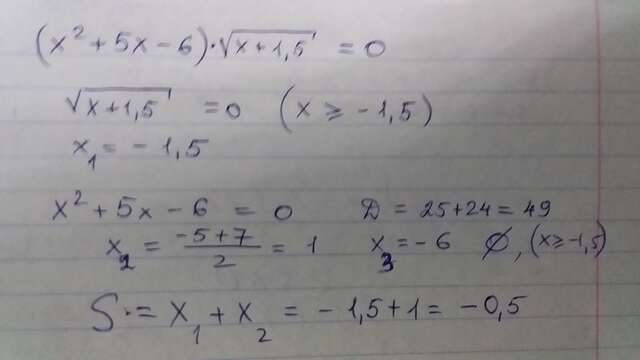 (x² + 5x − 6)·√(x + 1,5) = 0
√(x + 1,5) = 0 (x ≥ −1,5)
x₁ = −1,5
x² + 5x − 6 = 0 D = 25 + 24 = 49
x₂ = (−5 + 7)/2 = 1 x₃ = −6 ∅, (x ≥ −1,5)
S = x₁ + x₂ = −1,5 + 1 = −0,5